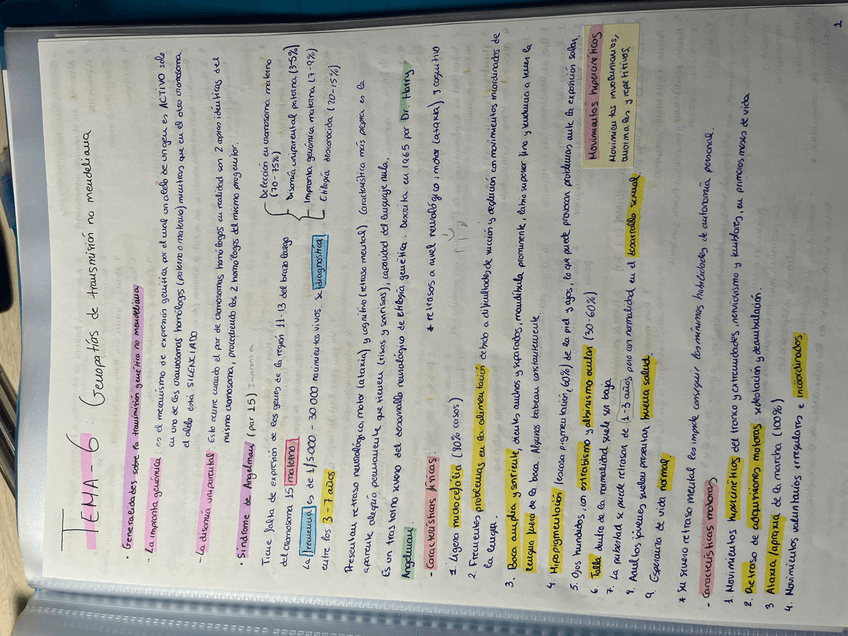 TEMA-6: Genopatías de transmisión no mendeliana
• Generalidades sobre la transmisión genética no mendeliana
- La impronta genómica: es el mecanismo de expresión genética por el cual un alelo de un gen es ACTIVO solo
en uno de los cromosomas homólogos (paterno o materno) mientras que en el otro cromosoma
el alelo está SILENCIADO
- La disomía uniparental: Esto ocurre cuando el par de cromosomas homólogos en realidad son 2 copias idénticas del
mismo cromosoma, procediendo los 2 homólogos del mismo progenitor.
• Síndrome de Angelman (par 15)
Tiene falta de expresión de los genes de la región 11-13 del brazo largo
del cromosoma 15 materno
Delección en cromosoma materno
(70-75%)
Disomía uniparental paterna (3-5%)
Impronta genómica materna (7-9%)
Etiología desconocida (10-15%)
La frecuencia es de 1/15.000 - 30.000 nacimientos vivos, se diagnostica
entre los 3-7 años
Presentan retraso neurológico, motor (ataxia) y cognitivo (retraso mental). Característica más propia es la
aparente alegría permanente que tienen (risas y sonrisas), capacidad del lenguaje nula.
Es un trastorno severo del desarrollo neurológico de etiología genética. Descrito en 1965 por Dr. Harry
Angelman
* retrasos a nivel neurológico, motor (ataxia) y cognitivo
- Características físicas
1. Ligera microcefalia (80% casos)
2. Frecuentes problemas en la alimentación debido a dificultades de succión y deglución con movimientos incordinados de
la lengua.
3. Boca amplia y sonriente, dientes anchos y separados, mandíbula prominente, labio superior fino y tendencia a tener la
lengua fuera de la boca. Algunos babean constantemente.
4. Hipopigmentación (escasa pigmentación, 60%) de la piel y ojos, lo que puede provocar problemas ante la exposición solar.
5. Ojos hundidos, con estrabismo y albinismo ocular (30-60%)
6. Talla dentro de la normalidad suele ser baja
7. La pubertad se puede retrasar de 1-3 años pero con normalidad en el desarrollo sexual.
8. Adultos jóvenes suelen presentar buena salud.
9. Esperanza de vida normal
Movimientos hipercinéticos
Movimientos involuntarios,
anormales y repetitivos
* Su severo retraso mental les impide conseguir las mínimas habilidades de autonomía personal.
- Características motoras
1. Movimientos hipercinéticos del tronco y extremidades, nerviosismo y temblores, en primeros meses de vida
2. Retraso de adquisiciones motoras: sedestación y deambulación.
3 Ataxia/apraxia de la marcha (100%)
4. Movimientos voluntarios irregulares e incoordinados
1